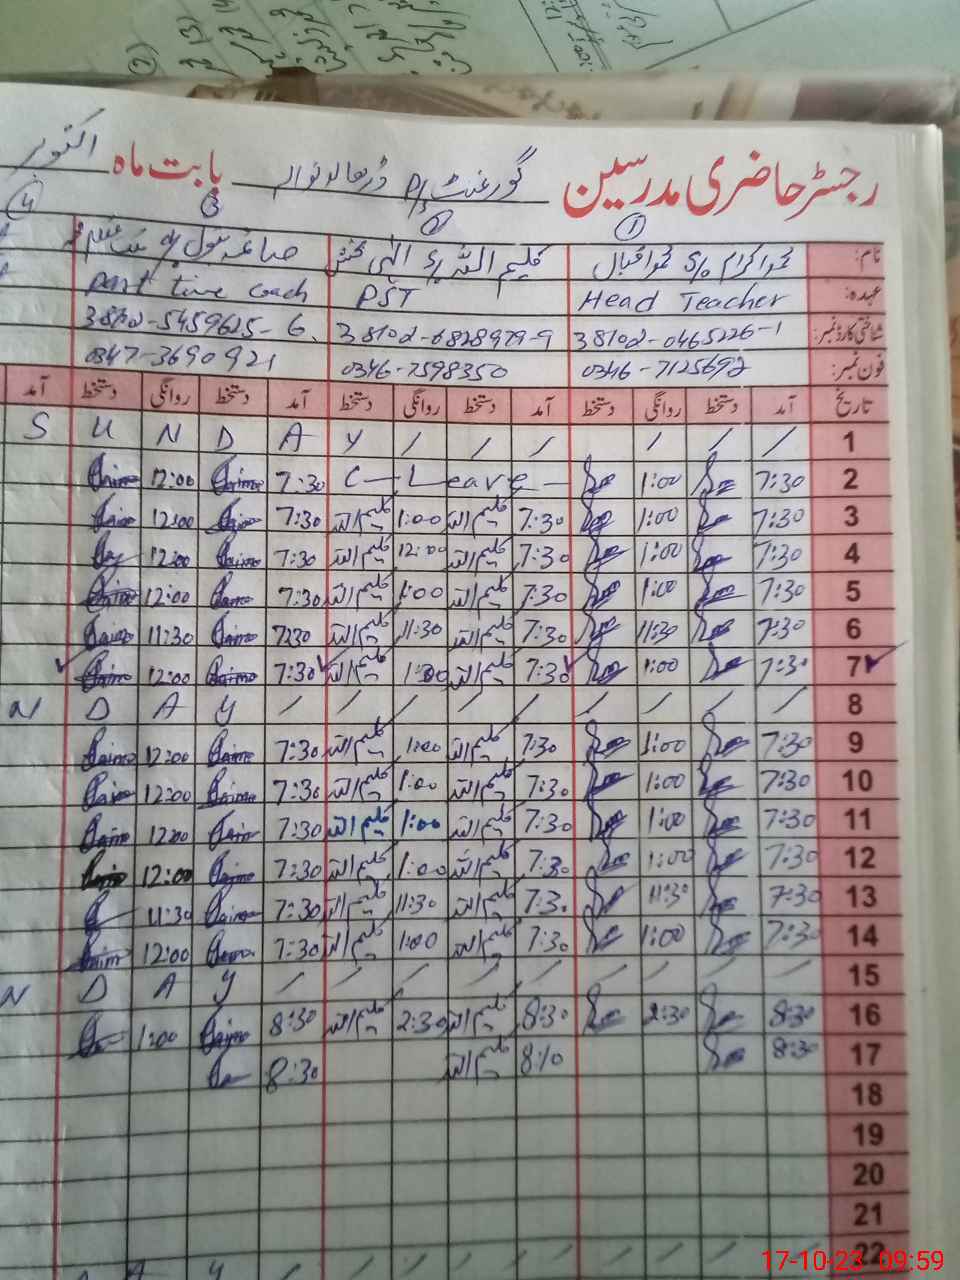 رجسٹر حاضری مدرسین گورنمنٹ P/S بابت ماہ اکتوبر
① ② ③ ④
نام: محمد اکرام S/o محمد اقبال کلیم اللہ S/o الٰہی بخش
عہدہ: Head Teacher PST Part time coach
شناختی کارڈ نمبر: 38102-0465226-1 38102-6828979-9 38102-5459625-6
فون نمبر: 0346-7125692 0346-7598350 0347-3690921
تاریخ آمد دستخط روانگی دستخط آمد دستخط روانگی دستخط آمد دستخط روانگی دستخط آمد
1 / / / / / / Y A D N U S
2 7:30 1:00 C-Leave 7:30 12:00
3 7:30 1:00 7:30 کلیم اللہ 1:00 کلیم اللہ 7:30 12:00
4 7:30 1:00 7:30 کلیم اللہ 12:00 کلیم اللہ 7:30 12:00
5 7:30 1:00 7:30 کلیم اللہ 1:00 کلیم اللہ 7:30 12:00
6 7:30 11:30 7:30 کلیم اللہ 11:30 کلیم اللہ 7:30 11:30
7 7:30 1:00 7:30 کلیم اللہ 1:00 کلیم اللہ 7:30 12:00
8 / / / / / / / / / Y A D N
9 7:30 1:00 7:30 کلیم اللہ 1:00 کلیم اللہ 7:30 12:00
10 7:30 1:00 7:30 کلیم اللہ 1:00 کلیم اللہ 7:30 12:00
11 7:30 1:00 7:30 کلیم اللہ 1:00 کلیم اللہ 7:30 12:00
12 7:30 1:00 7:30 کلیم اللہ 1:00 کلیم اللہ 7:30 12:00
13 7:30 11:30 7:30 کلیم اللہ 11:30 کلیم اللہ 7:30 11:30
14 7:30 1:00 7:30 کلیم اللہ 1:00 کلیم اللہ 7:30 12:00
15 / / / / / / / / / Y A D N
16 8:30 2:30 8:30 کلیم اللہ 2:30 کلیم اللہ 8:30 1:00
17 8:30 8:10 کلیم اللہ 8:30
18
19
20
21
22 / / / / / / / / / Y A D
17-10-23 09:59